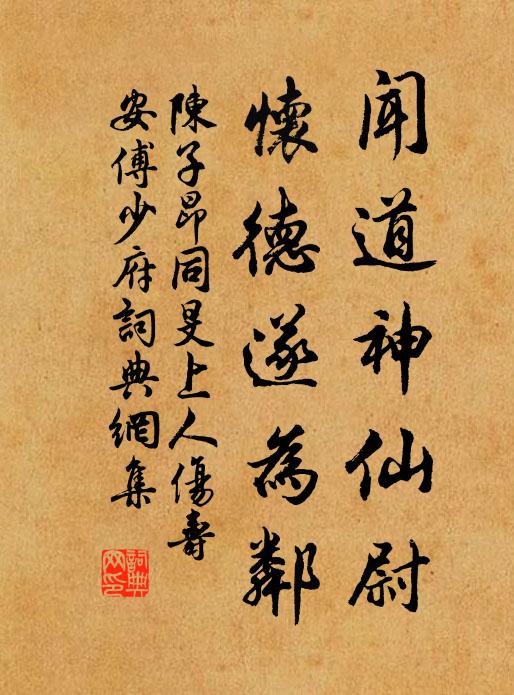 聞道神仙尉
懷德遂為鄰
陳子昂同旻上人傷壽
安傅少府詞典網集
詞典網印